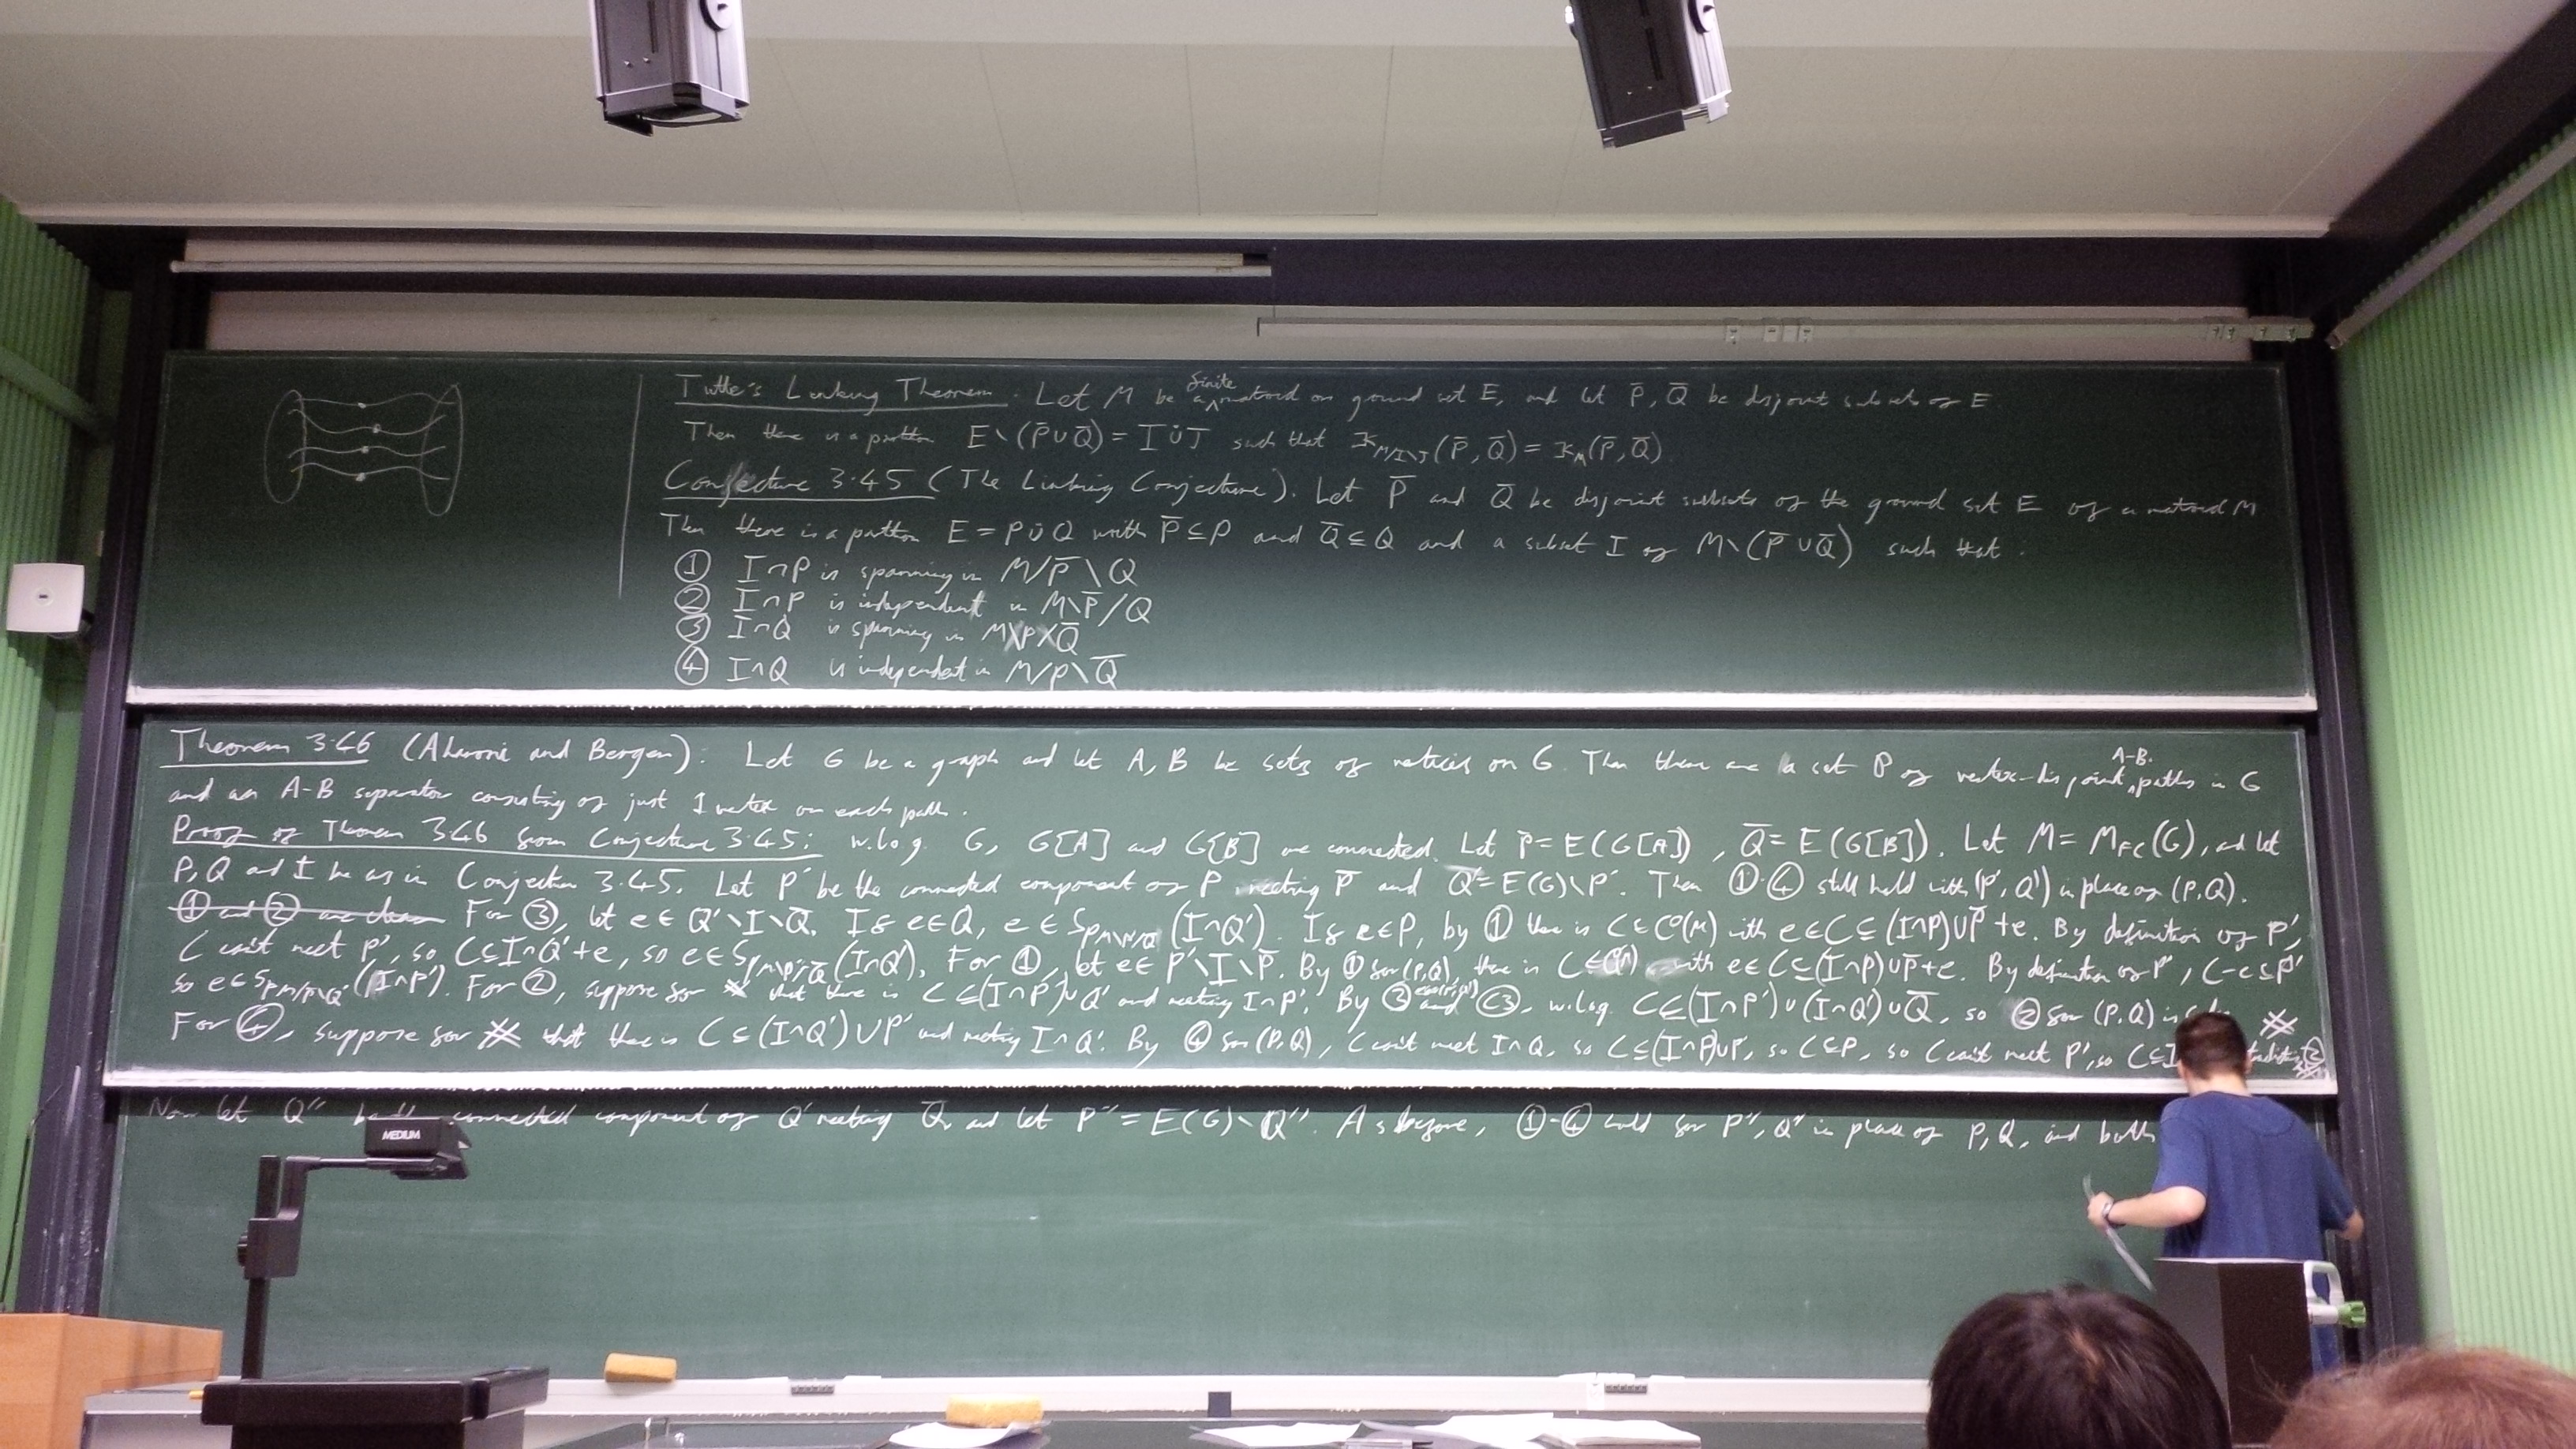 Tutte's Linking Theorem. Let M be a finite matroid on ground set E, and let P̄, Q̄ be disjoint subsets of E.
Then there is a partition E∖(P̄∪Q̄) = I ∪̇ J such that κ_{M/I∖J}(P̄,Q̄) = κ_M(P̄,Q̄).
Conjecture 3.45 (The Linking Conjecture). Let P̄ and Q̄ be disjoint subsets of the ground set E of a matroid M
Then there is a partition E = P ∪̇ Q with P̄ ⊆ P and Q̄ ⊆ Q and a subset I of M∖(P̄∪Q̄) such that:
① I∩P is spanning in M/P̄∖Q
② I∩P is independent in M∖P̄/Q
③ I∩Q is spanning in M∖P/Q̄
④ I∩Q is independent in M/P∖Q̄
Theorem 3.46 (Aharoni and Berger): Let G be a graph and let A, B be sets of vertices on G. Then there are a set P of vertex-disjoint A-B paths in G
and an A-B separator consisting of just 1 vertex on each path.
Proof of Theorem 3.46 from Conjecture 3.45: w.log. G, G[A] and G[B] are connected. Let P̄ = E(G[A]), Q̄ = E(G[B]). Let M = M_{FC}(G), and let
P, Q and I be as in Conjecture 3.45. Let P' be the connected component of P meeting P̄ and Q' = E(G)∖P'. Then ①-④ still hold with (P', Q') in place of (P,Q).
① and ② are clear For ③, let e ∈ Q'∖I∖Q̄. If e∈Q, e ∈ Sp_{M∖P'/Q̄}(I∩Q'). If e∈P, by ① there is C ∈ C(M) with e∈C⊆(I∩P)∪P̄+e. By definition of P',
C can't meet P', so C⊆I∩Q'+e, so e∈Sp_{M∖P'/Q̄}(I∩Q'). For ①, let e∈P'∖I∖P̄. By ① for (P,Q), there is C∈C(M) with e∈C⊆(I∩P)∪P̄+e. By definition of P', C-e⊆P'
so e∈Sp_{M/P̄∖Q'}(I∩P'). For ②, suppose for ※ that there is C⊆(I∩P')∪Q' and meeting I∩P'. By ③ for (P',Q') and (C3), w.log. C⊆(I∩P')∪(I∩Q')∪Q̄, so ② for (P,Q) is ※
For ④, suppose for ※ that there is C⊆(I∩Q')∪P' and meeting I∩Q'. By ④ for (P,Q), C can't meet I∩Q, so C⊆(I∩P)∪P', so C⊆P, so C can't meet P', so C⊆I
Now let Q'' be the connected component of Q' meeting Q̄, and let P'' = E(G)∖Q''. As before, ①-④ hold for P'', Q'' in place of P, Q, and both
MEDIUM